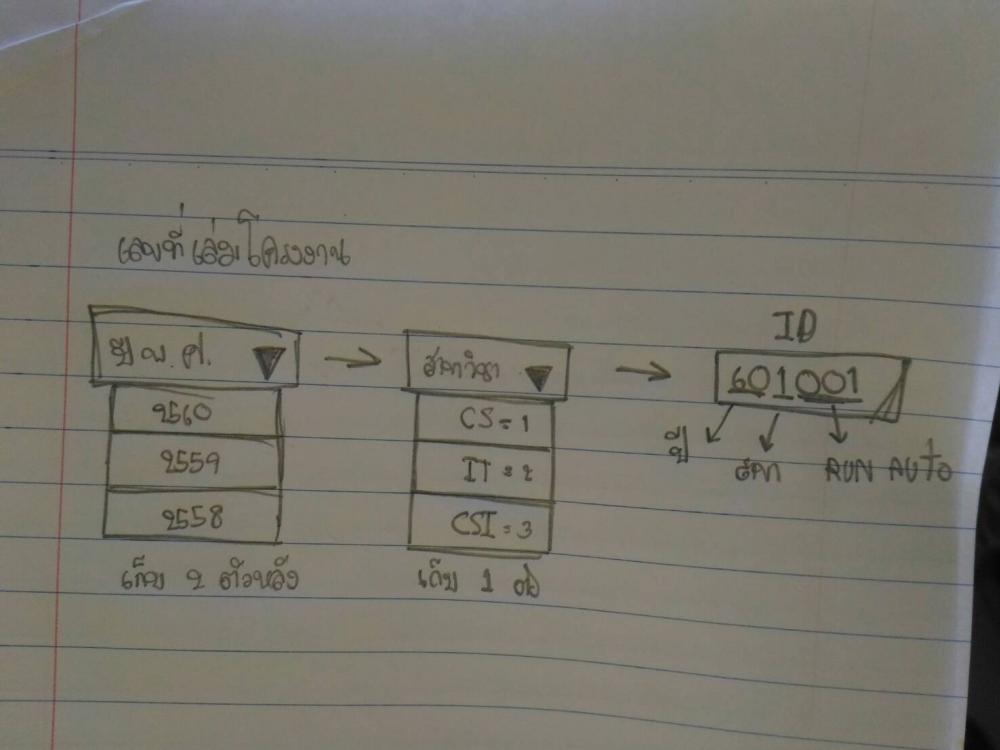 เลขที่เล่มโครงงาน
ปี พ.ศ.
2560
2559
2558
เก็บ 2 ตัวหลัง
สาขาวิชา
CS = 1
IT = 2
CSI = 3
เก็บ 1 ตัว
ID
601001
ปี สาขา RUN AUTO